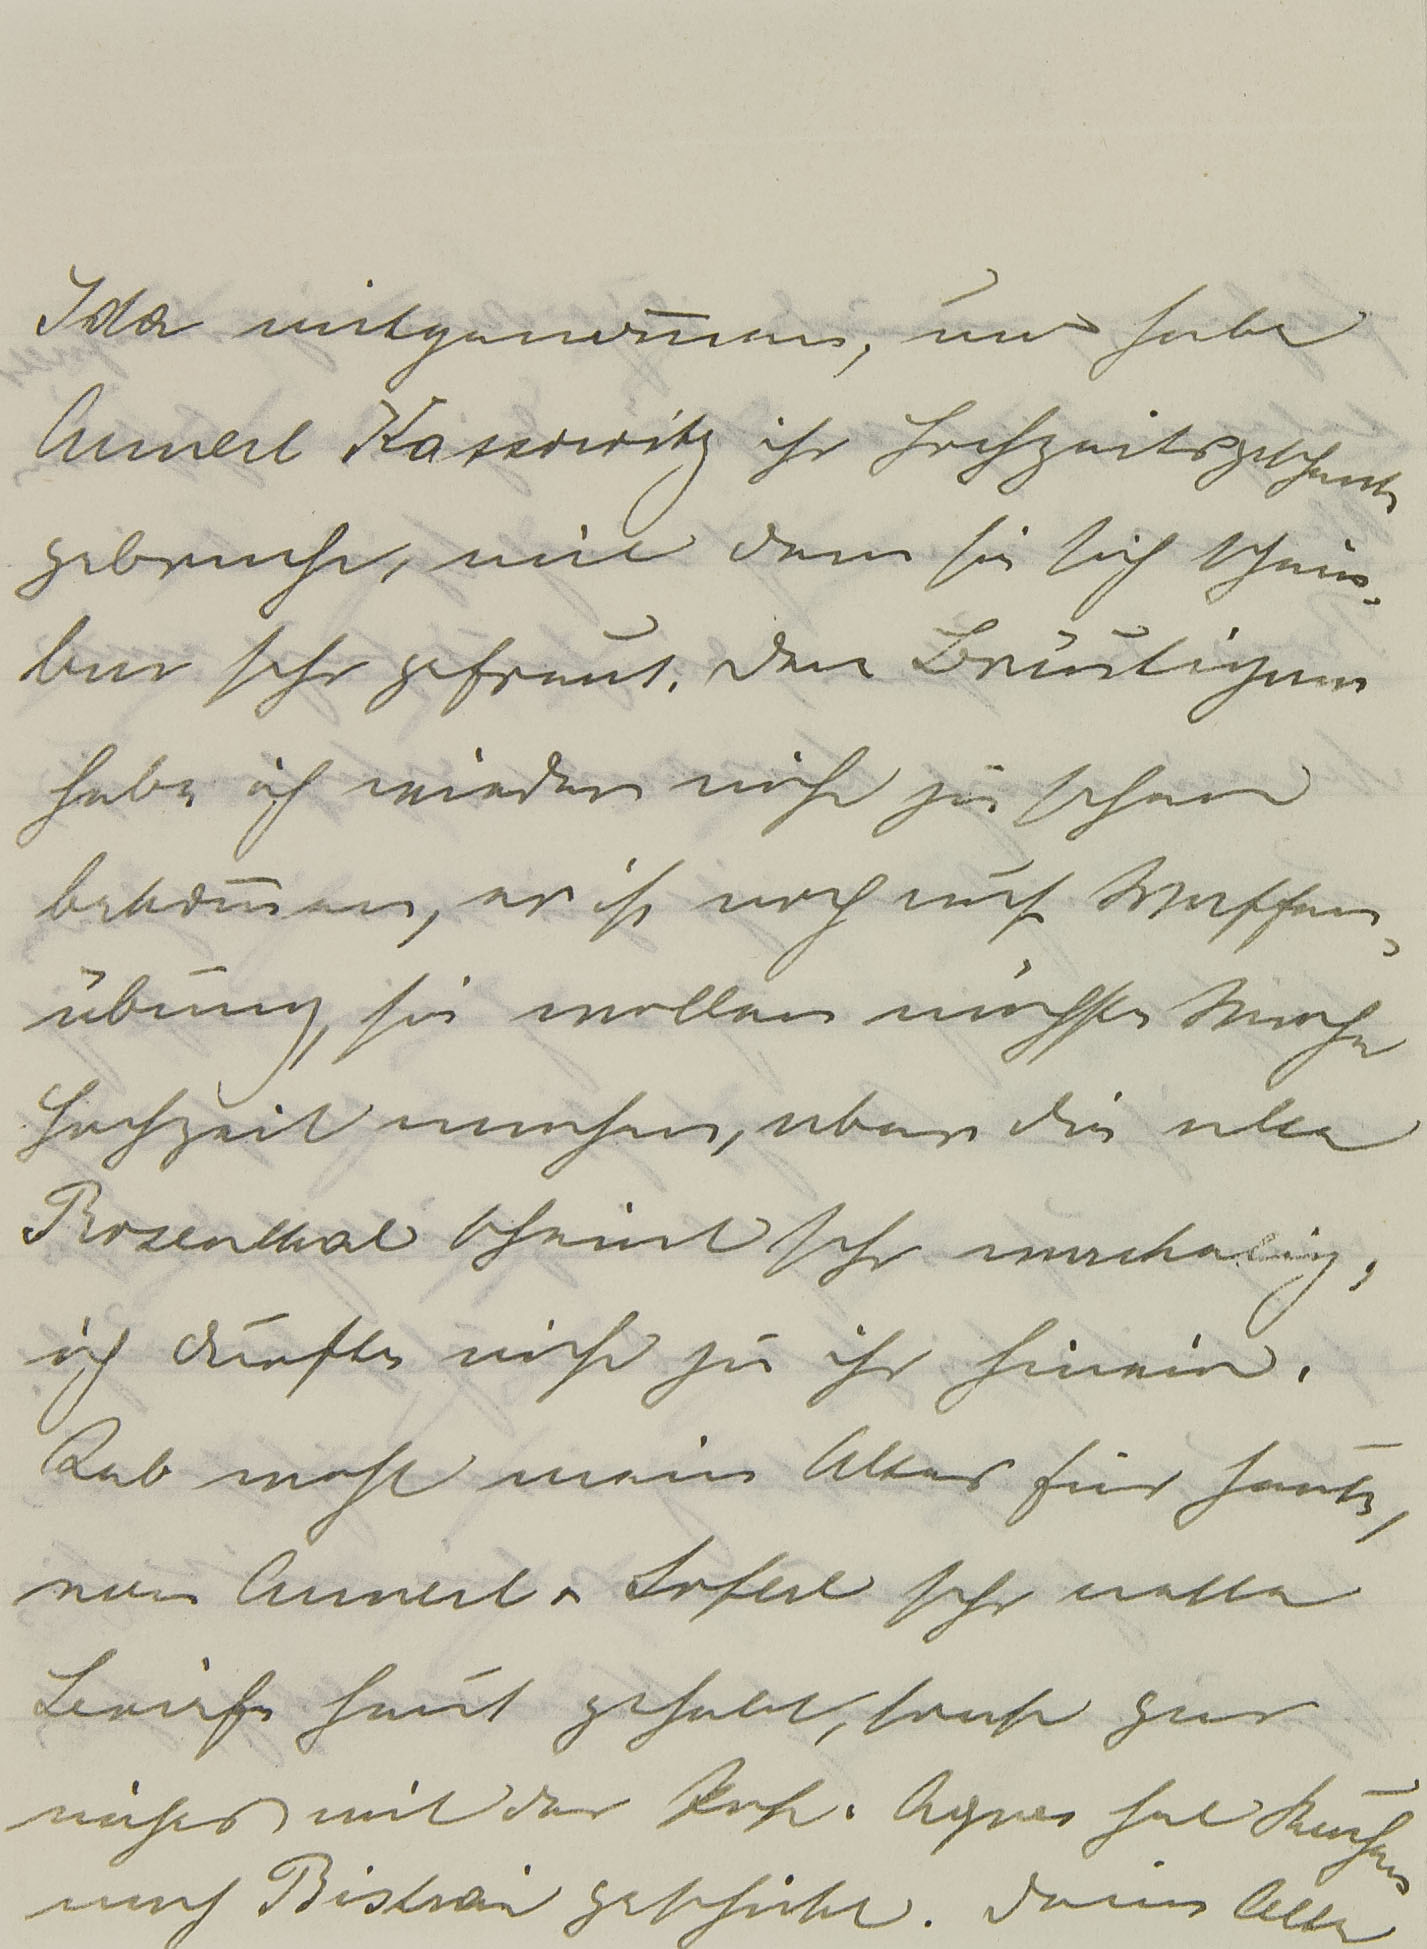 Ida mitgenom̄en, und habe
Annerl Kassowitz ihr Hochzeitsgeschenk
gebracht, mit dem sie sich schein-
bar sehr gefreut. Den Bräutigam
habe ich wieder nicht zu sehen
bekom̄en, er ist noch auf Waffen-
übung, sie wollen nächste Woche
Hochzeit machen, aber die alte
Rosenthal scheint sehr wackelig,
ich durfte nicht zu ihr hinein.
Leb wohl mein Alter für heute,
von Annerl & Soferl sehr nette
Briefe heut gehabt, sonst gar
nichts mit der Post. Agnes hat Kuchen
nach Bistrai geschickt. Deine Alte